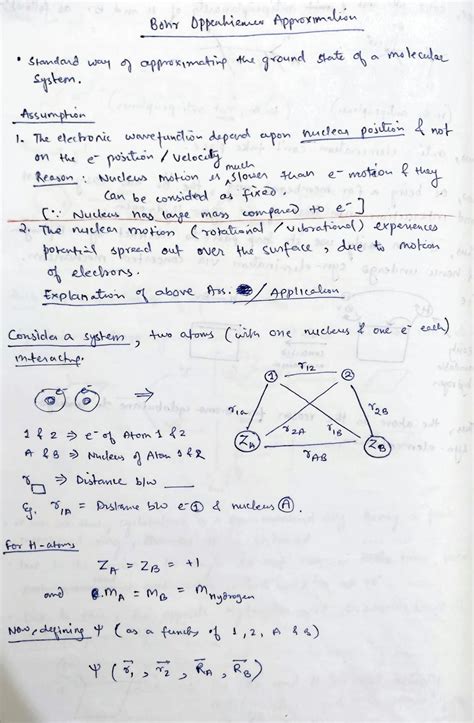 Bohr Oppenhiemer Approximation
• Standard way of approximating the ground state of a molecular
system.
Assumption
1. The electronic wavefunction depend upon nuclear position & not
on the e⁻ position / velocity
Reason : Nucleus motion is much slower than e⁻ motion & they
can be consided as fixed.
[∵ Nucleus has large mass compared to e⁻]
2. The nuclear motion (rotational / vibrational) experiences
potential spread out over the surface, due to motion
of electrons.
Explanation of above Ass. / Application
Consider a system, two atoms (with one nucleus & one e⁻ each)
interacting.
e⁻ e⁻ ⇒
1 r₁₂ 2
r₁A r₂A r₁B r₂B
Z_A r_AB Z_B
1 & 2 ⇒ e⁻ of Atom 1 & 2
A & B ⇒ Nucleus of Atom 1 & 2
r□ ⇒ Distance b/w __
Eg. r₁A = Distance b/w e⁻① & nucleus Ⓐ.
For H-atoms
Z_A = Z_B = +1
and m_A = m_B = m_Hydrogen
Now, defining Ψ (as a funcn of 1, 2, A & B)
Ψ (r⃗₁, r⃗₂, R⃗_A, R⃗_B)